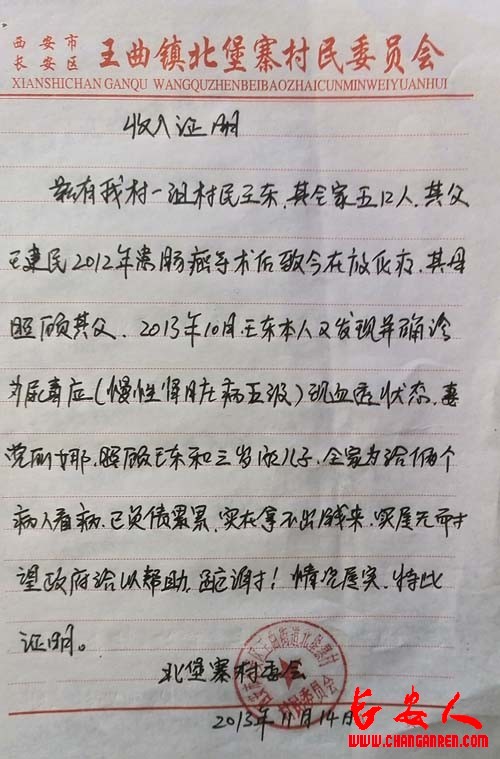 西安市
长安区
王曲镇北堡寨村民委员会
XIANSHICHAN GANQU WANGQUZHENBEIBAOZHAICUNMINWEIYUANHUI
收入证明
兹有我村一组村民王东,其全家五口人,其父
王建民2012年患肠癌手术后致今在放化疗,其母
照顾其父、2013年10月,王东本人又发现并确诊
为尿毒症(慢性肾脏病五级)现血透状态,妻
党丽娜,照顾王东和三岁的儿子,全家为给俩个
病人看病,已负债累累,实在拿不出钱来,实属无耐
望政府给以帮助,致谢!情况属实,特此
证明。
北堡寨村委会
村民委员会
2013年11月14日
长安人
WWW.CHANGANREN.COM